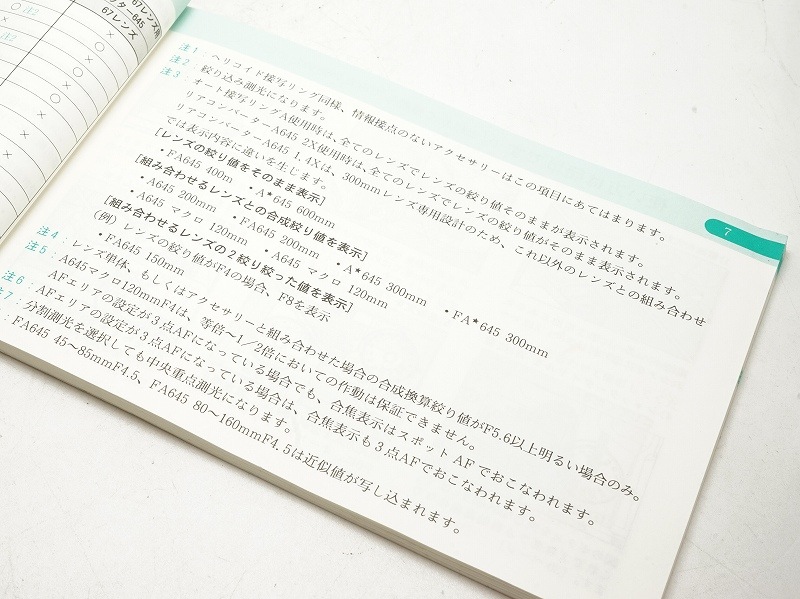 67レンズ用
ター645
67レンズ
注2
注2
7
注1：ヘリコイド接写リング同様、情報接点のないアクセサリーはこの項目にあてはまります。
注2：絞り込み測光になります。
注3：オート接写リングA使用時は、全てのレンズでレンズの絞り値そのままが表示されます。
リアコンバーターA645 2X使用時は、全てのレンズでレンズの絞り値がそのまま表示されます。
リアコンバーターA645 1.4Xは、300mmレンズ専用設計のため、これ以外のレンズとの組み合わせ
では表示内容に違いを生じます。
[レンズの絞り値をそのまま表示]
・FA645 400m ・A★645 600mm
[組み合わせるレンズとの合成絞り値を表示]
・A645 200mm ・FA645 200mm ・A★645 300mm ・FA★645 300mm
・A645 マクロ 120mm ・A645 マクロ 120mm
[組み合わせるレンズの2絞り絞った値を表示]
(例) レンズの絞り値がF4の場合、F8を表示
・FA645 150mm
注4：レンズ単体、もしくはアクセサリーと組み合わせた場合の合成換算絞り値がF5.6以上明るい場合のみ。
注5：A645マクロ120mmF4は、等倍〜1/2倍においての作動は保証できません。
注6：AFエリアの設定が3点AFになっている場合でも、合焦表示はスポットAFでおこなわれます。
AFエリアの設定が3点AFになっている場合は、合焦表示も3点AFでおこなわれます。
注7：分割測光を選択しても中央重点測光になります。
：FA645 45〜85mmF4.5、FA645 80〜160mmF4.5は近似値が写し込まれます。